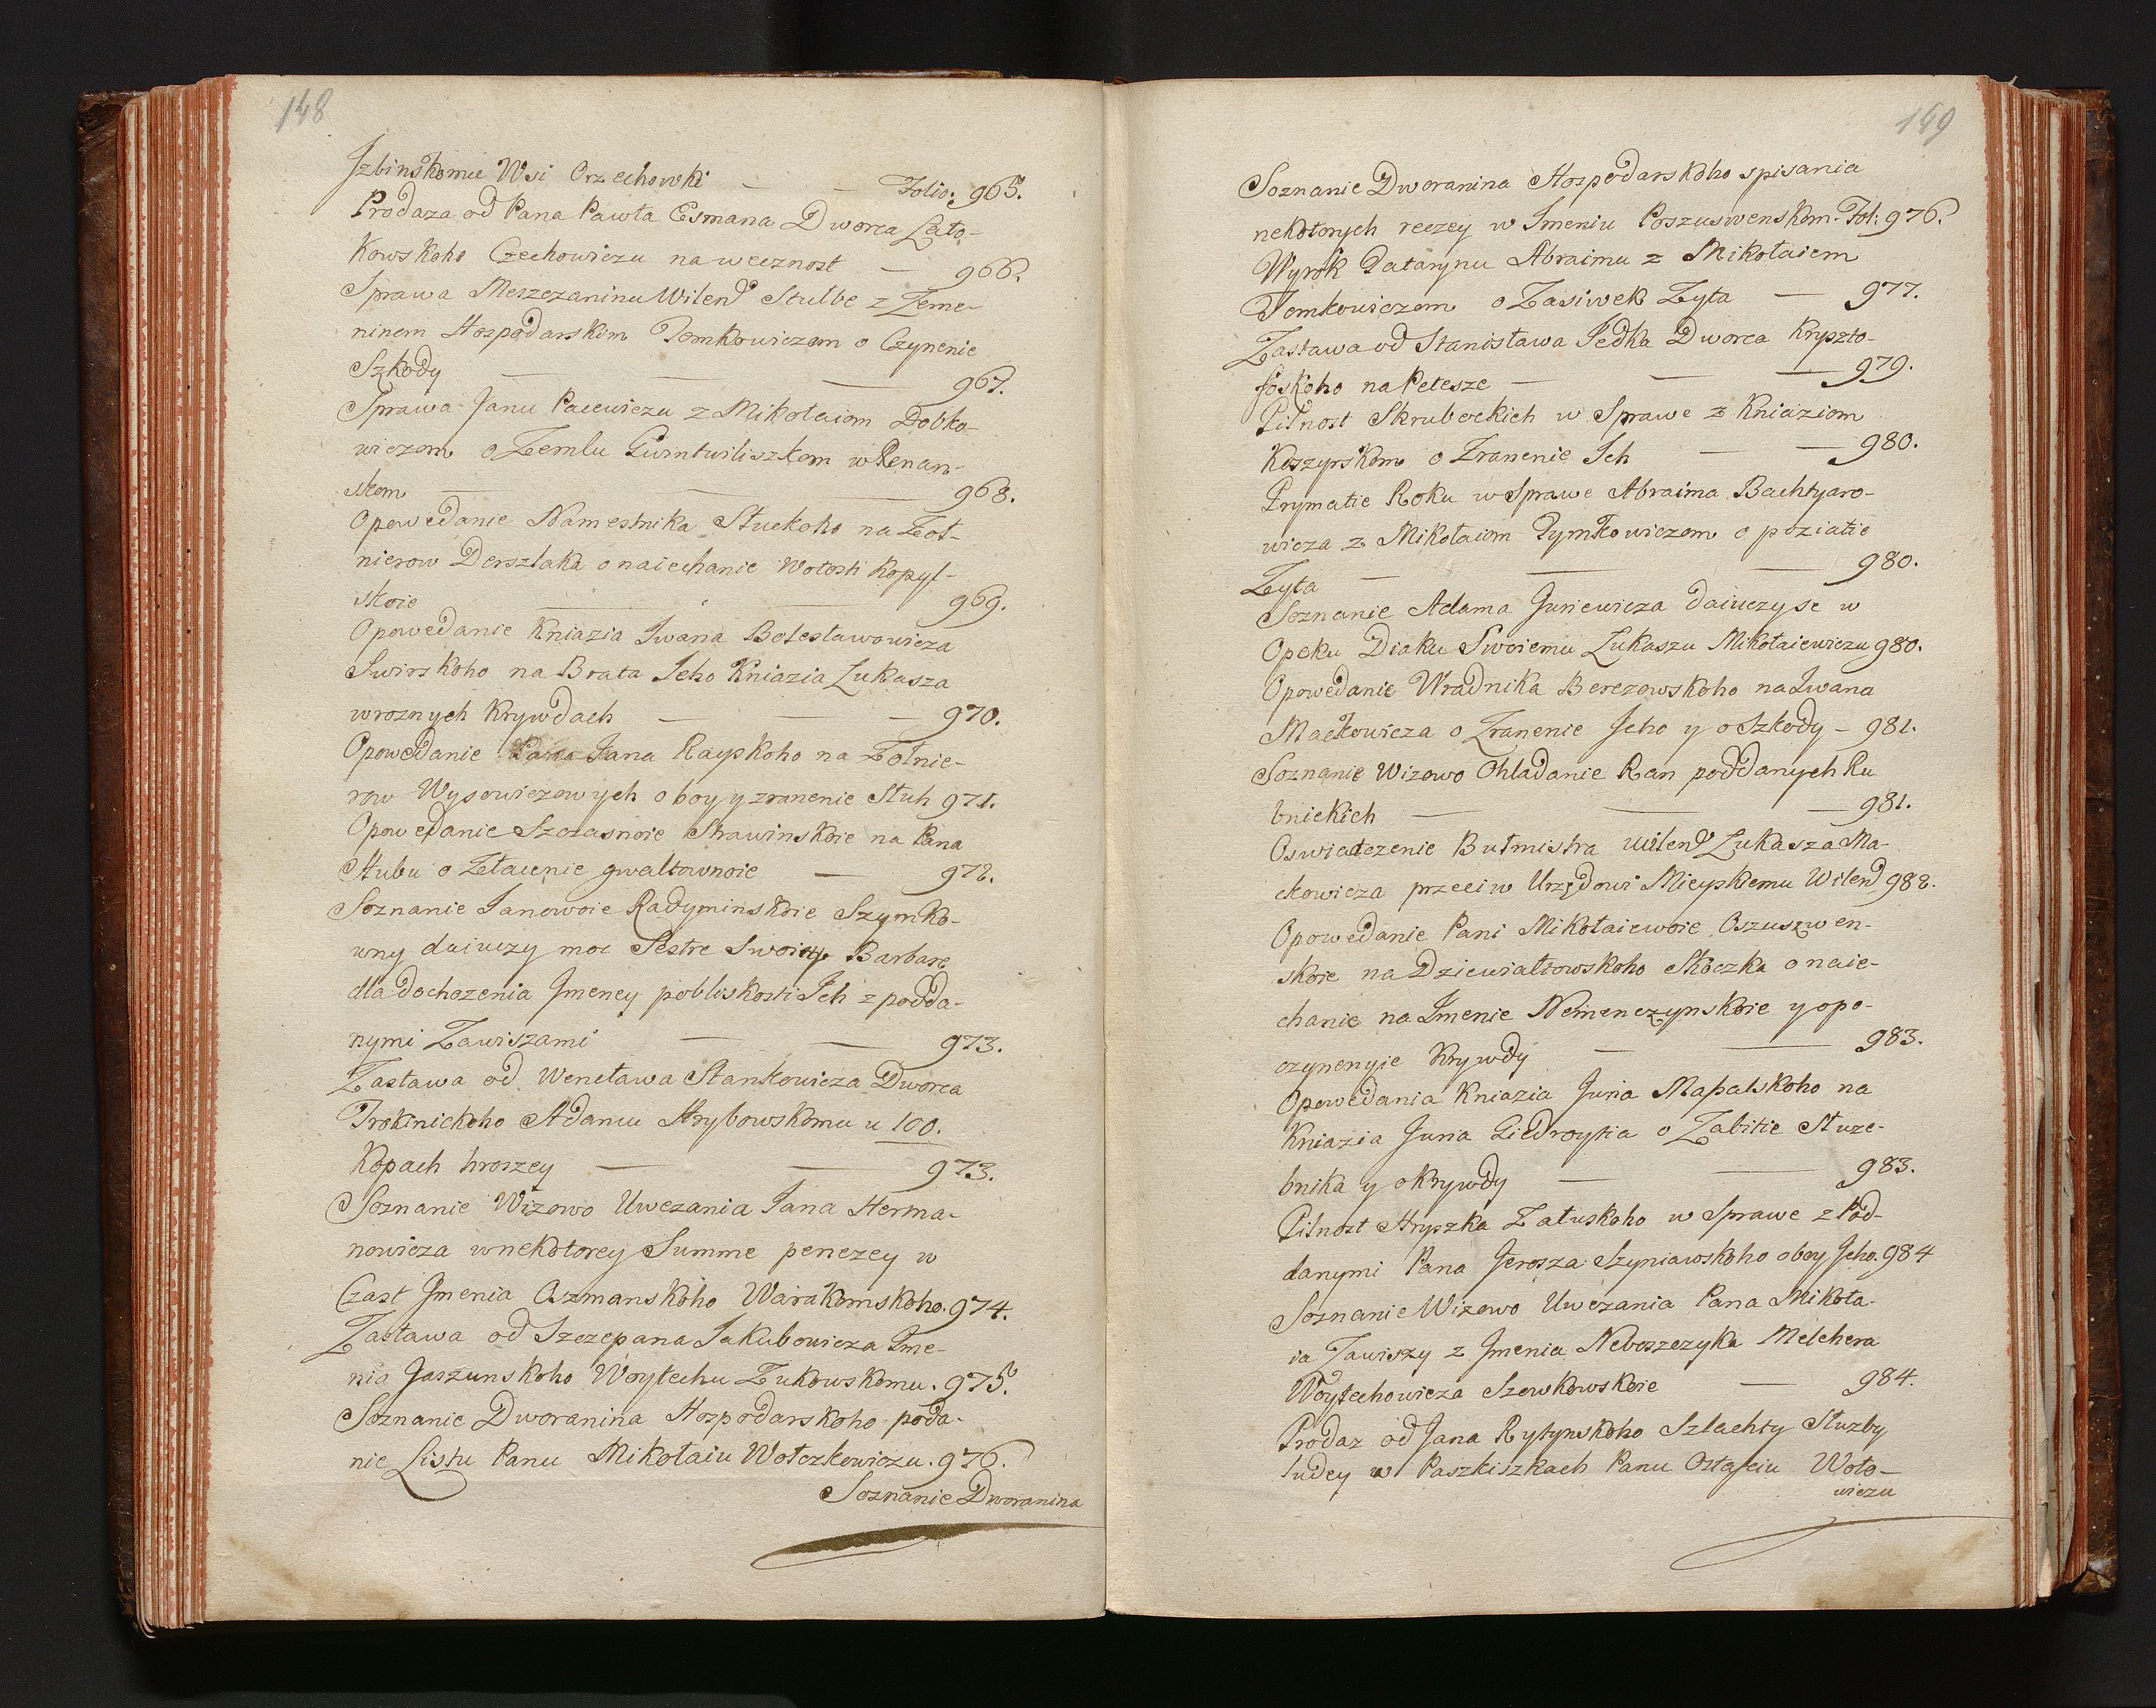 148
Izbinskomu Wsi Orzechowki — — Folio: 965.
Prodaza od Pana Pawła Esmana Dworca Lato-
kowskoho Czechowiczu na wecznost — 966.
Sprawa Meszczaninu Wilend Stulbe z Zeme-
ninem Hospodarskim Tomkowiczom o Czynenie
Szkody — — — 967.
Sprawa Janu Pacewiczu z Mikołaiom Dobko-
wiczom o Zemlu Gwintwiliszkom w Renan-
skom — — — 968.
Opowedanie Namestnika Słuckoho na Żoł-
nierow Derszlaka o naiechanie Wołosti Kopyl-
skoie — — 969.
Opowedanie Kniazia Iwana Bolesławowicza
Swirskoho na Brata Ieho Kniazia Łukasza
w roznych Krywdach — — — 970.
Opowedanie Pana Jana Rayskoho na Żołnie-
row Wysowiczowych o boy y zranenie Słuh 971.
Opowedanie Szczasnoie Strawinskoie na Pana
Stubu o Złaienie gwałtownoie — 972.
Soznanie Ianowoie Radyminskoie Szymko-
wny daiuczy moc Sestre Swoiey Barbare
dla dochozenia Imeney po bliskosti Ich z podda-
nymi Zawiszami — — 973.
Zastawa od Wencława Stankowicza Dworca
Trokinickoho Adamu Hrybowskomu u 100.
Kopach hroszey — — 973.
Soznanie Wizowo Uwezania Jana Herma-
nowicza w nekotorey Summe penezey w
Czast Imenia Oszmanskoho Warakomskoho. 974.
Zastawa od Szczepana Jakubowicza Ime-
nia Jaszunskoho Woytechu Żukowskomu. 975.
Soznanie Dworanina Hospodarskoho poda-
nie Listu Panu Mikołaiu Wołczkowiczu. 976.
Soznanie Dworanina
149
Soznanie Dworanina Hospodarskoho spisania
nekotorych reczey w Imeniu Poszuswenskom. Fol: 976.
Wyrok Tatarynu Abraimu z Mikołaiem
Tomkowiczom o Zasiwek Żyta — 977.
Zastawa od Stanisława Jedka Dworca Kryszto-
foskoho na Petesze — — — 979.
Pilnost Skrubockich w Sprawe z Kniaziom
Koszyrskom o Zranenie Ich — — 980.
Prymatie Roku w Sprawe Abraima Bachtyaro-
wicza z Mikołaiom Tymkowiczom o poziatie
Żyta — — — 980.
Soznanie Adama Juriewicza daiuczy se w
Opeku Diaku Swoiemu Łukaszu Mikołaiewiczu 980.
Opowedanie Wradnika Berezowskoho na Iwana
Mackowicza o Zranenie Jeho y o Szkody — 981.
Soznanie Wizowo Ohladanie Ran poddanych Ru
bnickich — — — 981.
Oswiadczenie Burmistra Wilend Łukasza Ma-
ckowicza przeciw Urzędowi Mieyskiemu Wilend 982.
Opowedanie Pani Mikołaiewoie Oszuszwen-
skoie na Dziewiałtowskoho Skoczka o naie-
chanie na Imenie Nemenczynskoie y o po-
czynenyie Krywdy — — 983.
Opowedania Kniazia Juria Masalskoho na
Kniazia Juria Giedroytia o Zabitie Służe-
bnika y o Krywdy — — 983.
Pilnost Hryszka Załuskoho w Sprawe z Pod-
danymi Pana Jerosza Szyniawskoho o boy Jeho. 984
Soznanie Wizowo Uwezania Pana Mikoła-
ia Zawiszy z Imenia Neboszczyka Melchera
Woytechowicza Szewkowskoie — 984.
Prodaz od Jana Rytynskoho Szlachty Służby
ludey w Paszkiszkach Panu Ostafeiu Woło-
wiczu